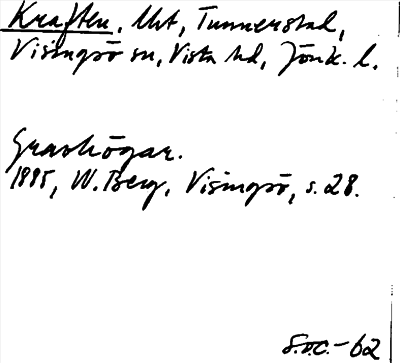 Kraften, Uvt, Tunnerstad,
Visingsö sn, Vista hd, Jönk. l.
Gravhögar.
1885, W. Berg, Visingsö, s. 28.
S.v.C.-62